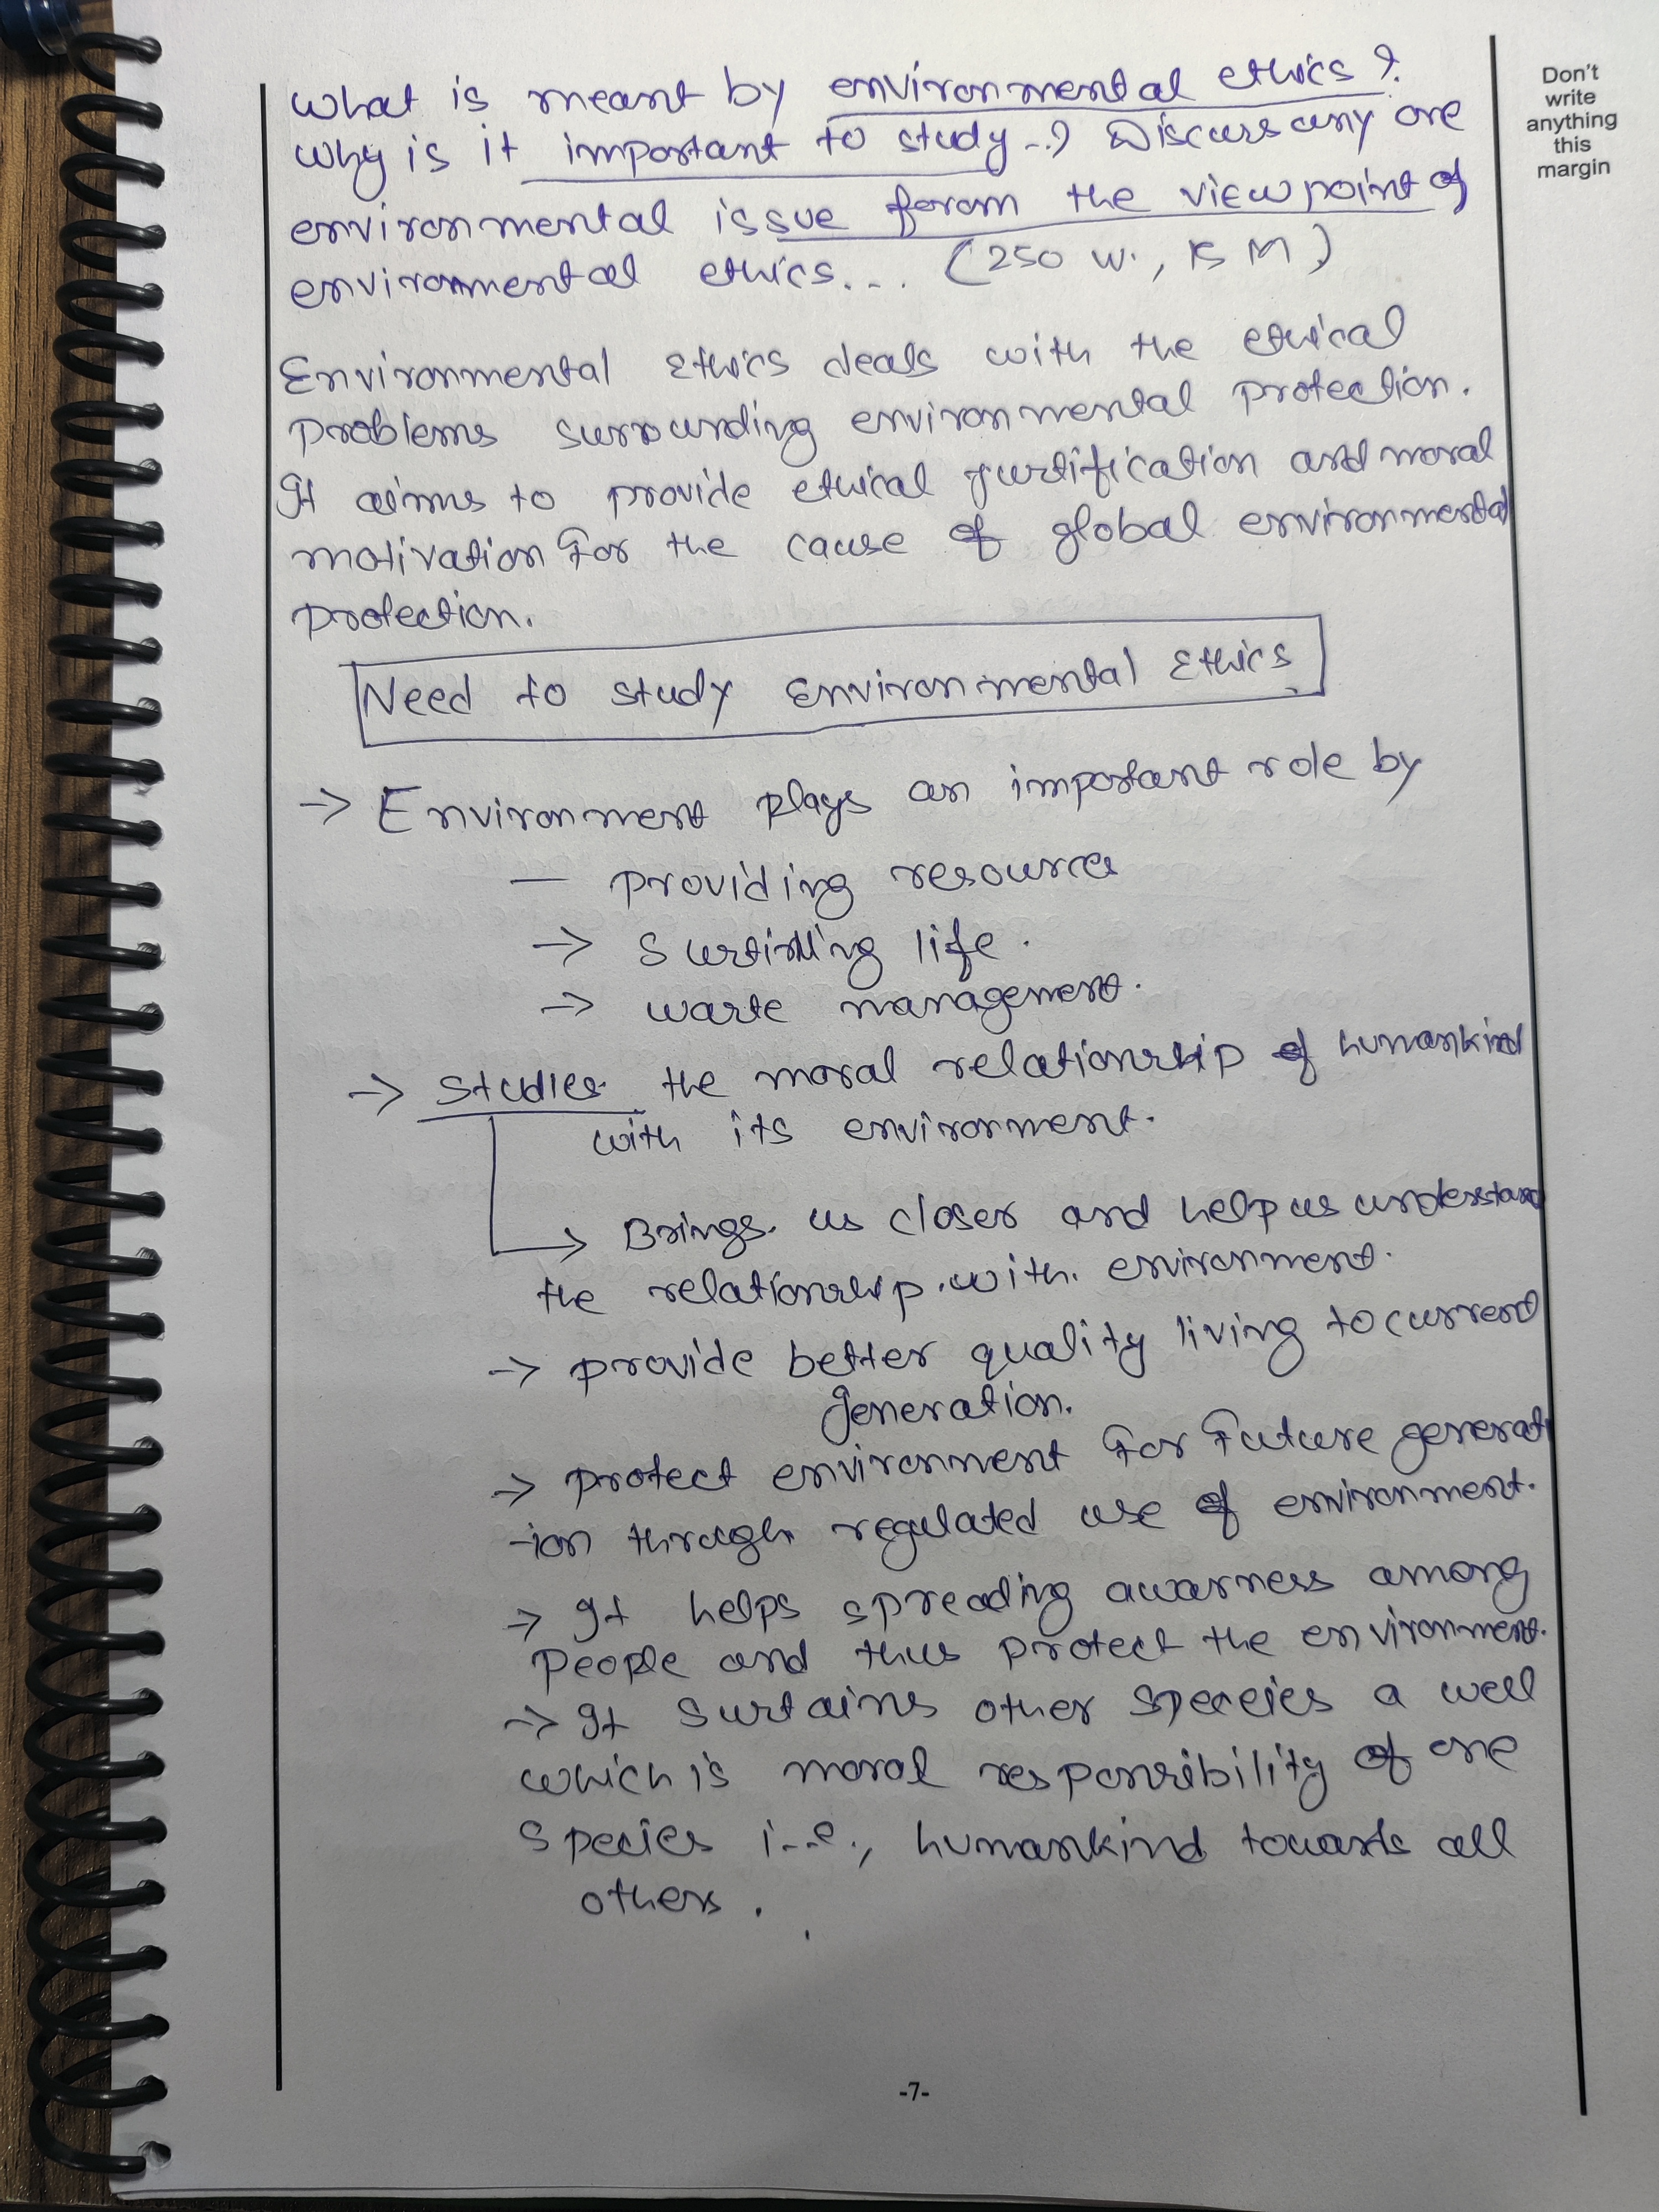 What is meant by environmental ethics?
Why is it important to study..? Discuss any one
environmental issue from the viewpoint of
environmental ethics... (250 W., 15 M)
Environmental Ethics deals with the ethical
problems surrounding environmental protection.
It aims to provide ethical justification and moral
motivation for the cause of global environmental
protection.
Need to study Environmental Ethics
→ Environment plays an important role by
— providing resources
→ Sustaining life.
→ waste management.
→ Studies the moral relationship of humankind
with its environment.
→ Brings us closer and help us understand
the relationship with environment.
→ provide better quality living to current
generation.
→ protect environment for future generat
-ion through regulated use of environment.
→ It helps spreading awarness among
people and thus protect the environment.
→ It sustains other species a well
which is moral responsibility of one
species i.e., humankind towards all
others.
-7-
Don't
write
anything
this
margin